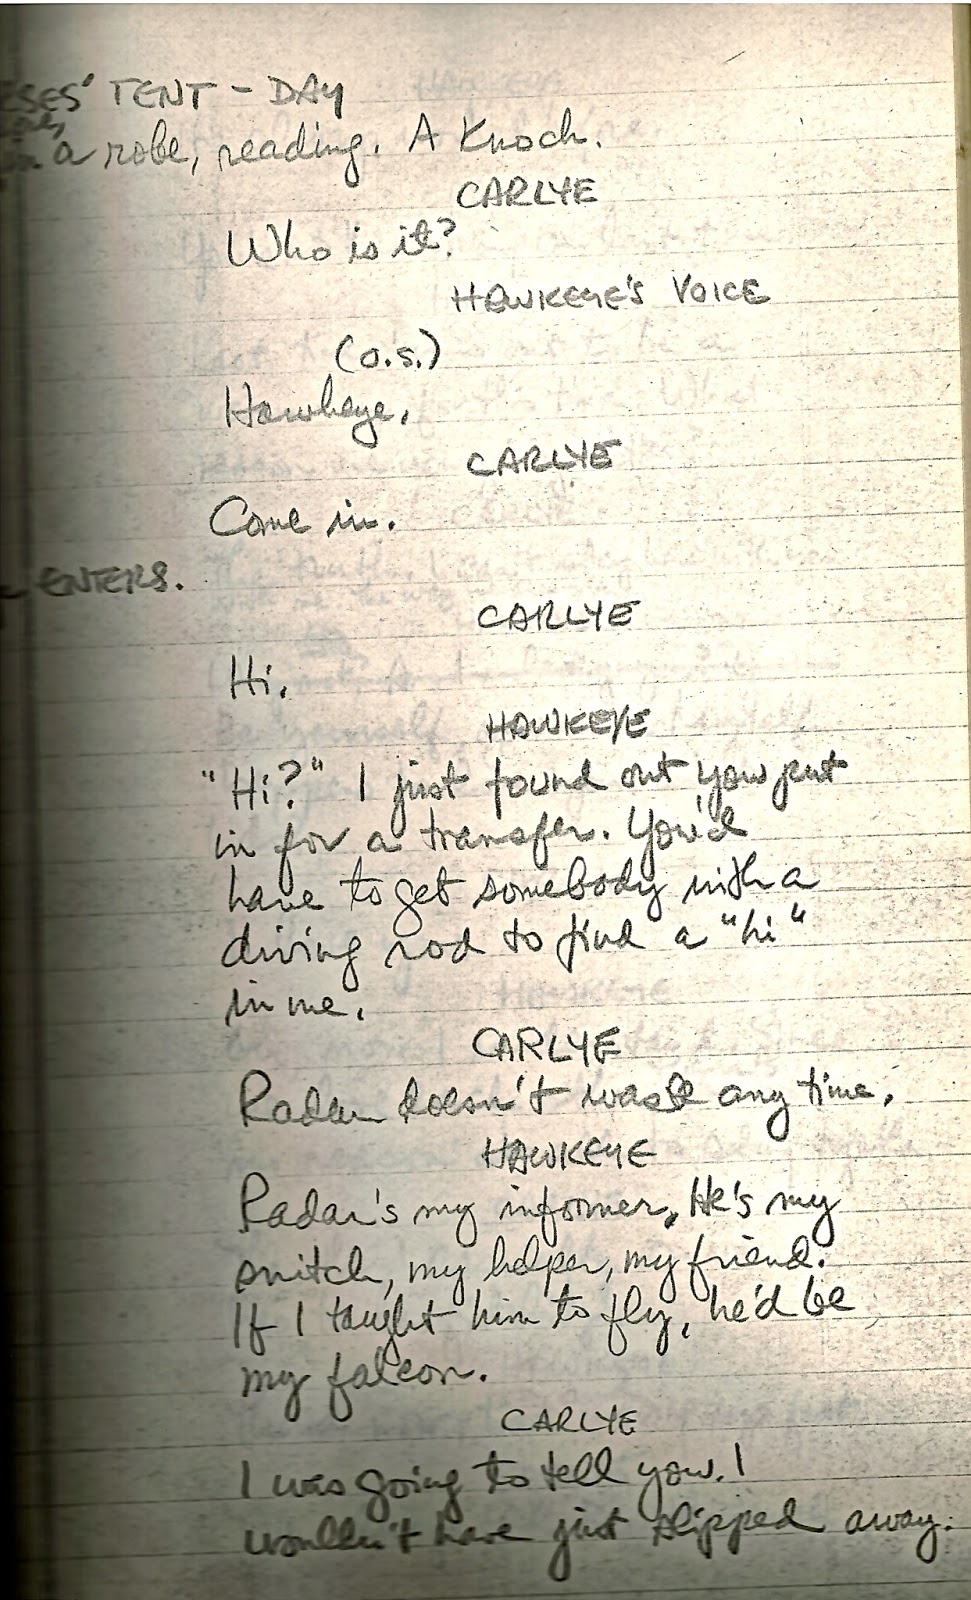 ESES' TENT - DAY
in a robe, reading. A Knock.
CARLYE
Who is it?
HAWKEYE'S VOICE
(o.s.)
Hawkeye.
CARLYE
Come in.
ENTERS.
CARLYE
Hi.
HAWKEYE
"Hi?" I just found out you put
in for a transfer. You'd
have to get somebody with a
diving rod to find a "hi"
in me.
CARLYE
Radar doesn't waste any time.
HAWKEYE
Radar's my informer, He's my
snitch, my helper, my friend.
If I taught him to fly, he'd be
my falcon.
CARLYE
I was going to tell you. I
wouldn't have just slipped away.